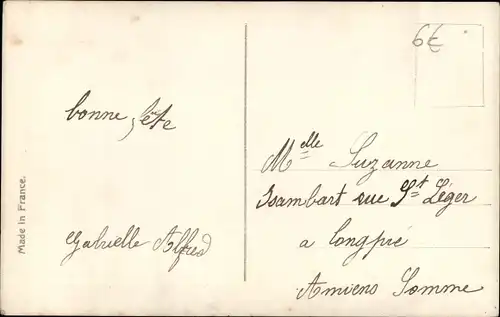 6€
bonne fête
Gabrielle Alfred
Made in France.
Melle Suzanne
Isambart rue St Léger
a longpré
Amiens Somme